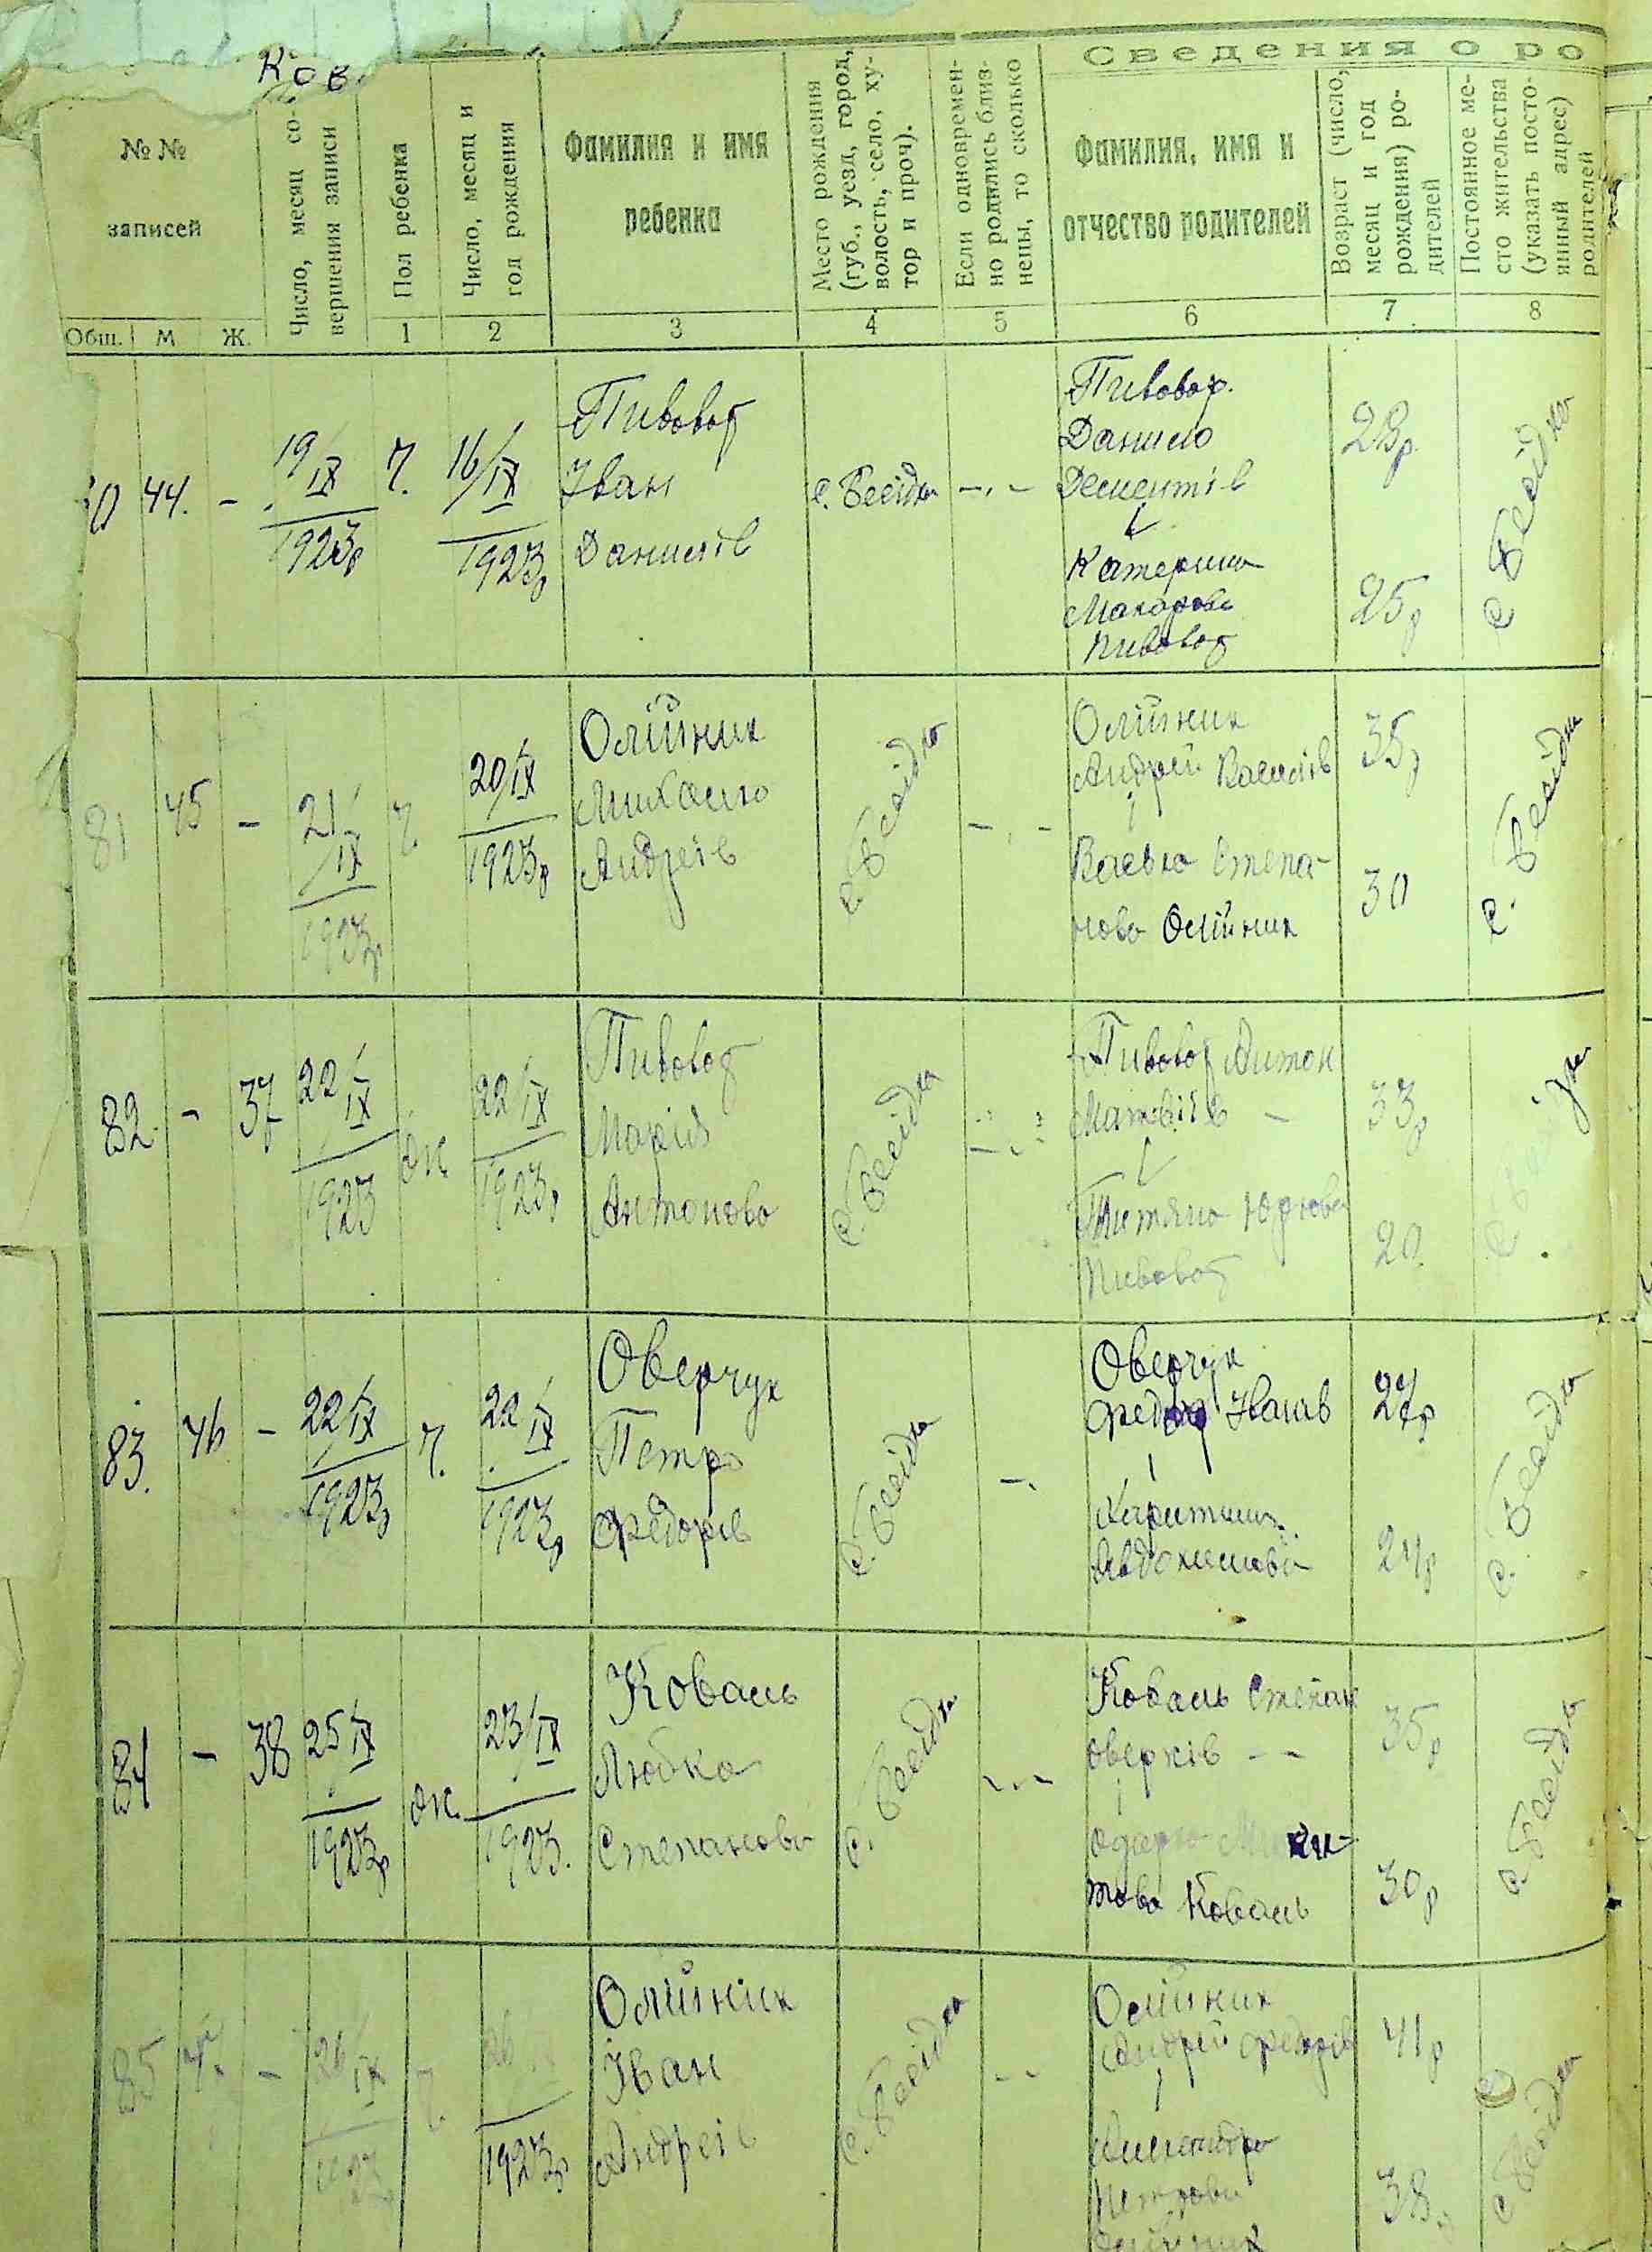 Ков
Сведения о ро
№ №
записей
Число, месяц со-
вершения записи
Пол ребенка
Число, месяц и
год рождения
Фамилия и имя
ребенка
Место рождения
(губ., уезд, город,
волость, село, ху-
тор и проч).
Если одновремен-
но родились близ-
нецы, то сколько
Фамилия, имя и
отчество родителей
Возраст (число,
месяц и год
рождения) ро-
дителей
Постоянное ме-
сто жительства
(указать посто-
янный адрес)
родителей
Общ. М Ж. 1 2 3 4 5 6 7 8
44. - 19/IX 1923р Ч. 16/IX 1923р
Пивовар
Іван
Данилів
с. Бесідка
Пивовар.
Данило
Дементів
28р
Катерина
Макарова
Пивовар
25р
с Бесідка
81 45 - 21/IX 1923р Ч 20/IX 1923р
Олійник
Михайло
Андреів
с. Бесідка
Олійник
Андрей Василів
35р
Степа-
нова Олійник
30
с. Бесідка
82 - 37 22/IX 1923 ж 22/IX 1923р
Пивовар
Марія
Антонова
с. Бесідка
Пивовар Антон
Матвіїв -
33р
Титяна Юркова
Пивовар
20
83. 46 - 22/IX 1923р Ч. 22/IX 1923р
Оверчук
Петро
Федорів
с. Бесідка
Оверчук
Федор Іванів
27р
Харитина
Авдокимова
24р
с. Бесідка
84 - 38 25/IX 1923р ж. 23/IX 1923.
Коваль
Любка
Степанова
с. Бесідка
Коваль Степан
Оверків - -
35р
Одарка Мики-
това Коваль
30р
с Бесідка
85 - 26/IX Ч 26 1923р
Олійник
Іван
Андреів
с. Бесідка
Олійник
Андрей Федорів
41р
Петрова
Олійник
38р
с Бесідка